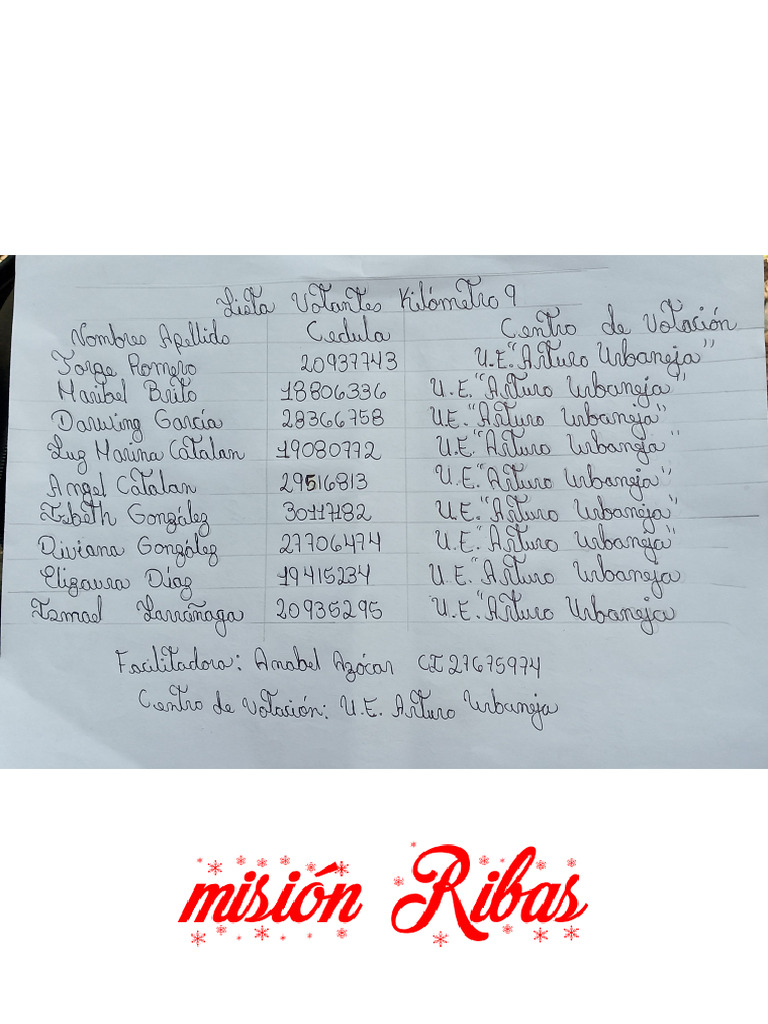 Lista Votantes Kilómetro 9
Nombres Apellido Cedula Centro de Votación
Jorge Romero 20937743 U.E. "Arturo Urbaneja"
Maribel Brito 18806336 U.E. "Arturo Urbaneja"
Darwing García 28366758 U.E. "Arturo Urbaneja"
Luz Marina Catalan 19080772 U.E. "Arturo Urbaneja"
Angel Catalan 29516813 U.E. "Arturo Urbaneja"
González 30117182 U.E. "Arturo Urbaneja"
González 27706474 U.E. "Arturo Urbaneja"
Elizaura Díaz 19415234 U.E. "Arturo Urbaneja
Ismael Larrañaga 20935295 U.E. "Arturo Urbaneja
Facilitadora: Anabel Azócar CI 27675974
Centro de Votación: U.E. Arturo Urbaneja
misión Ribas